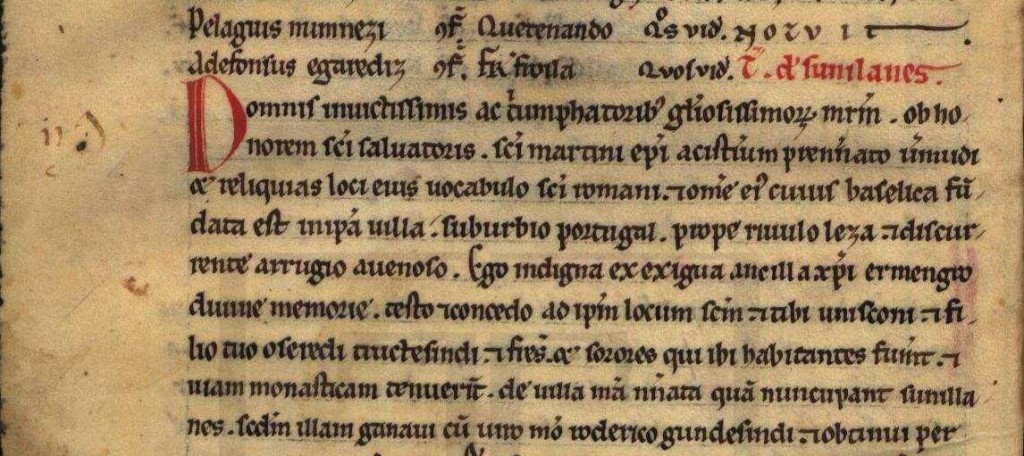 Pelagius nunnezi ɔf̄. Quetenando Qͦs vid. NOTVIT.
Adefonsus egarediz ɔf̄. fr̄ froila Quos vid. T̄. de sunilanes.
Domnis inuictissimis ac tͥumphatoribꝰ gl̄iosissimoꝝ mr̄m. ob ho
norem sc̄i saluatoris. sc̄i martini ep̄i acist̄ium
⁊ reliquias loci eius uocabulo sc̄i romani. ⁊ om̄e cuius baselica fū
data est in ip̄a uilla. suburbio portugal. prope riuulo leza ⁊ discur
rente arrugio auenoso. Ego indigna ex exigua ancilla xp̄i ermengro
diuine memorie. testo ⁊ concedo ad ip̄m locum sc̄m ⁊ tibi unisconi ⁊ fi
lio tuo oseredi tructesindi ⁊ fr̄es ⁊ sorores qui ibi habitantes fuer̄int. ⁊
uiam monasticam tenuer̄t. de uilla mā nn̄ata quā nuncupant sunilla
nes. sedm̄ illam ganaui cū uiro mō roderico gundesindi ⁊ obtinui per